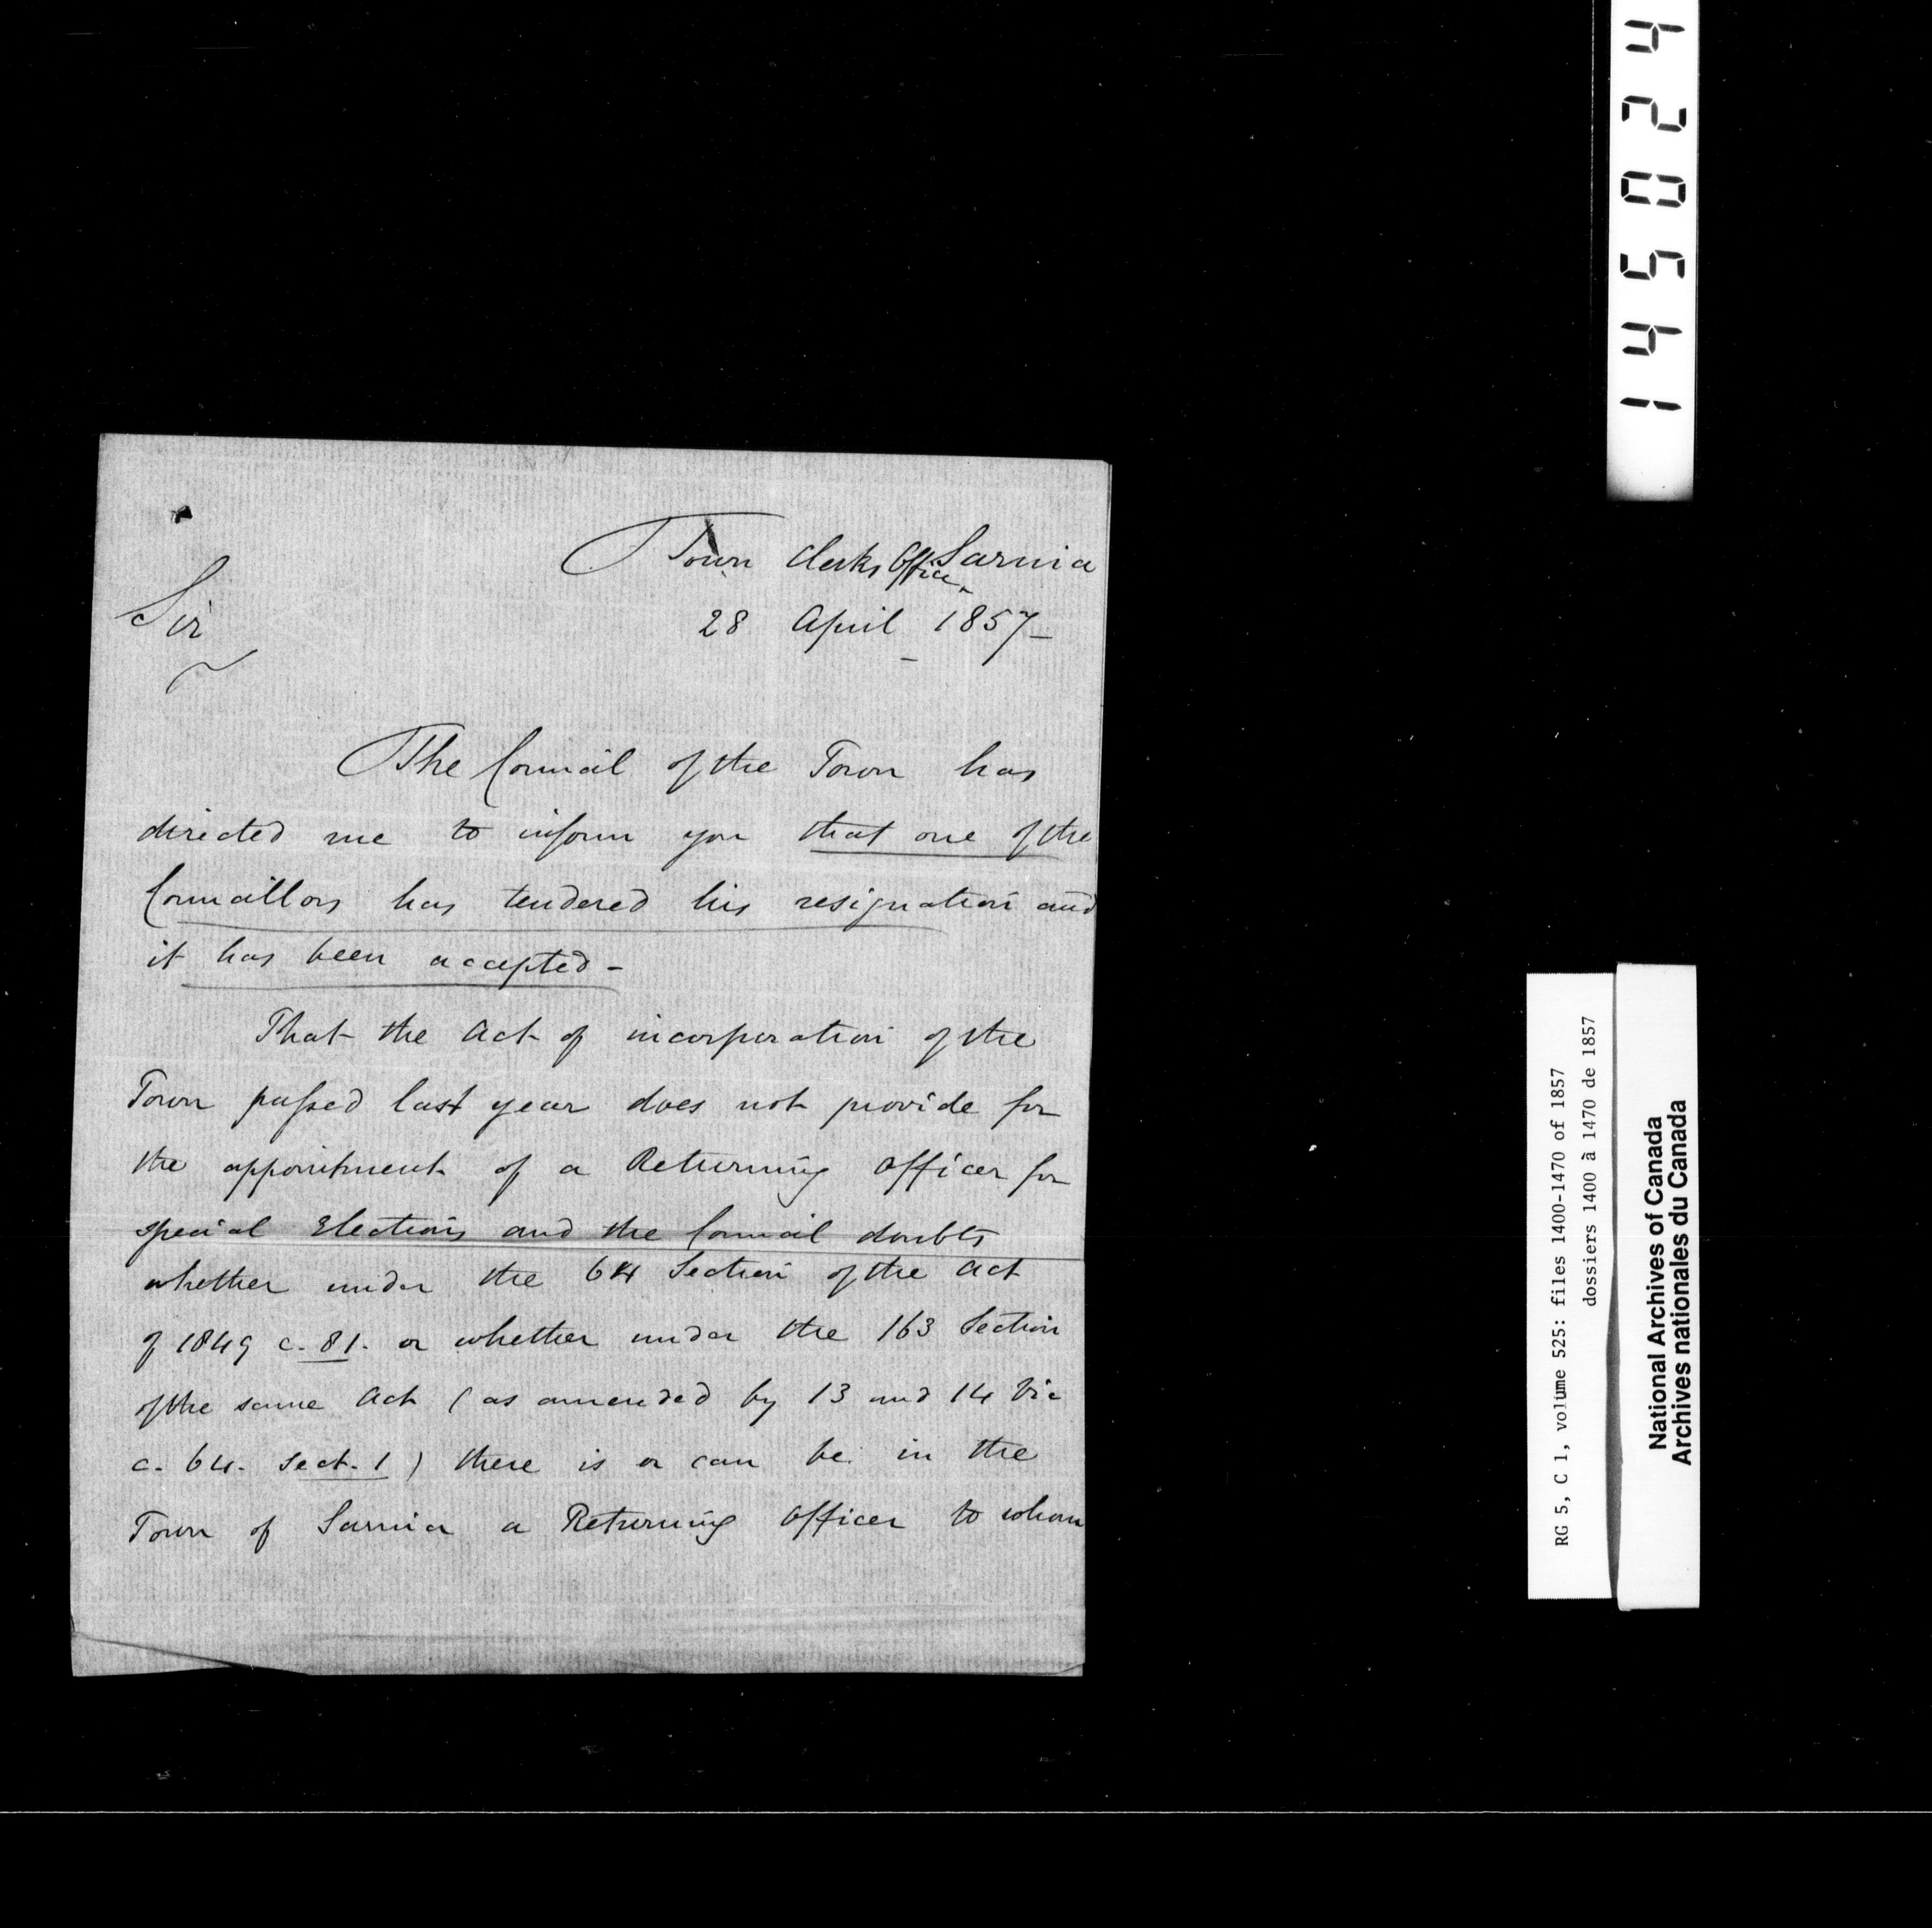 Town Clerks Office Sarnia
28 April 1857-
Sir
The Council of the Town has
directed me to inform you that one of the
Councillors has tendered his resignation and
it has been accepted-
That the Act of incorporation of the
Town passed last year does not provide for
the appointment of a Returning Officer for
special Elections and the Council doubts
whether under the 64 Section of the Act
of 1849 c. 81. or whether under the 163 Section
of the same Act (as amended by 13 and 14 Vic
c. 64. Sect. 1) there is or can be in the
Town of Sarnia a Returning Officer to whom
145024
RG 5, C 1, volume 525: files 1400-1470 of 1857
dossiers 1400 à 1470 de 1857
National Archives of Canada
Archives nationales du Canada